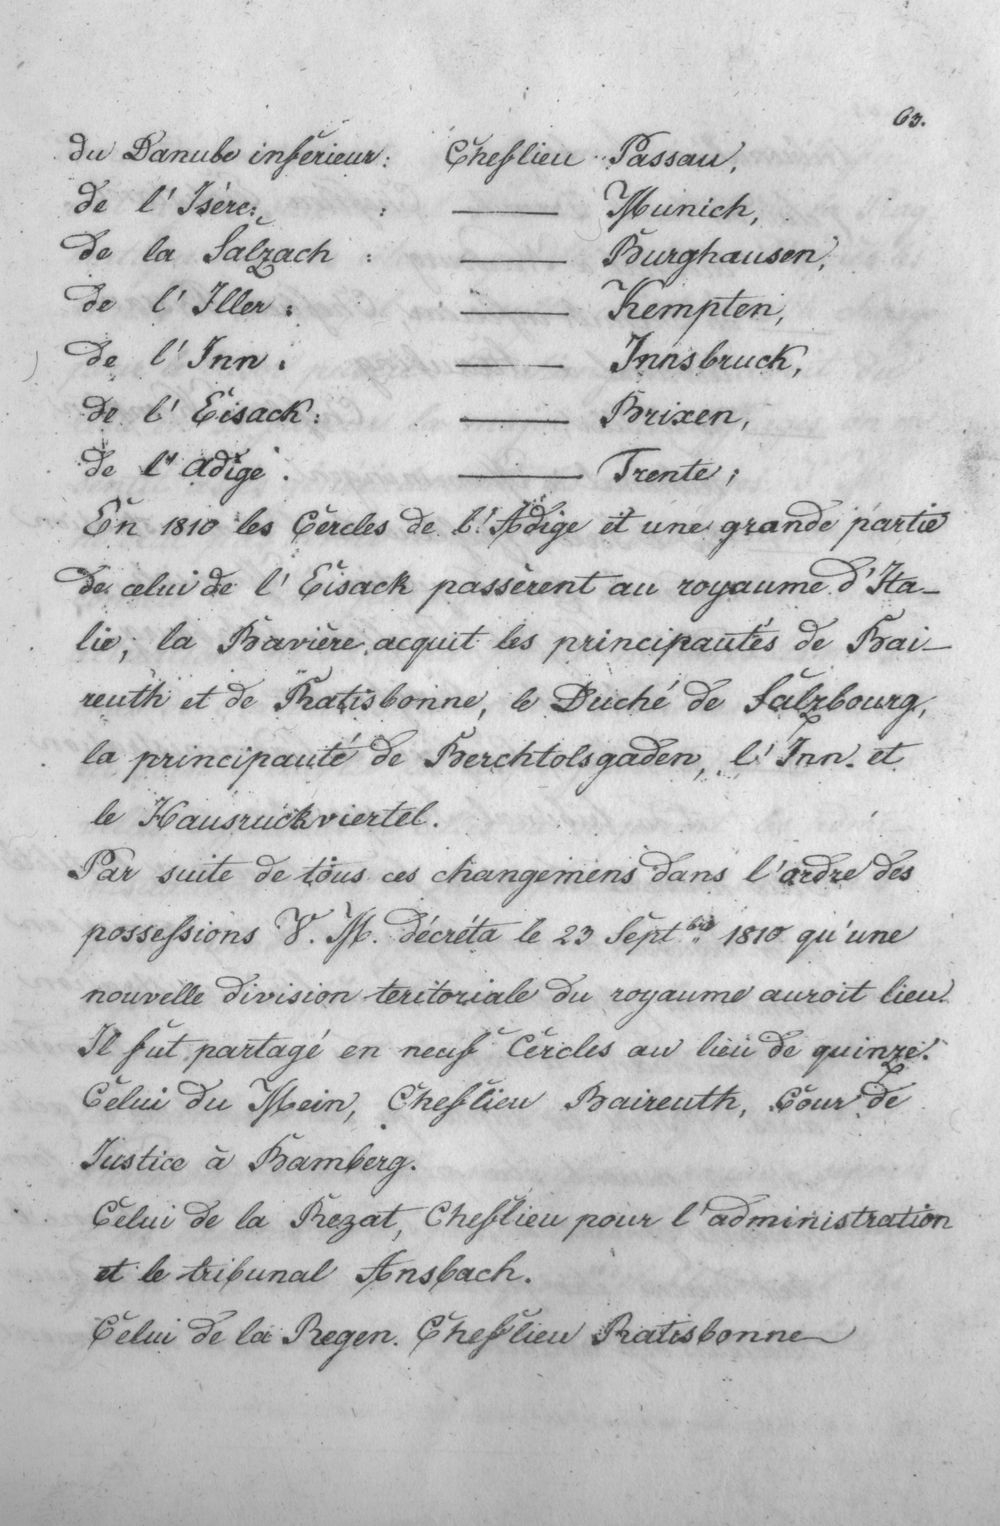 63.
du Danube inférieur: Cheflieu Passau,
de l'Isère: : —— Munich,
de la Salzach : —— Burghausen,
de l'Iller : —— Kempten,
de l'Inn : —— Innsbruck,
de l'Eisack : —— Brixen,
de l'Adige . —— Trente ;
En 1810 les Cercles de l'Adige et une grande partie
de celui de l'Eisack passèrent au royaume d'Ita-
lie ; la Bavière acquit les principautés de Bai-
reuth et de Ratisbonne, le Duché de Salzbourg,
la principauté de Berchtolsgaden, l'Inn- et
le Hausruckviertel.
Par suite de tous ces changemens dans l'ordre des
possessions V. M. décréta le 23 Septbre 1810 qu'une
nouvelle division teritoriale du royaume auroit lieu.
Il fut partagé en neuf Cercles au lieu de quinze.
Celui du Mein, Cheflieu Baireuth, Cour de
Justice à Bamberg.
Celui de la Rezat, Cheflieu pour l'administration
et le tribunal Ansbach.
Celui de la Regen. Cheflieu Ratisbonne